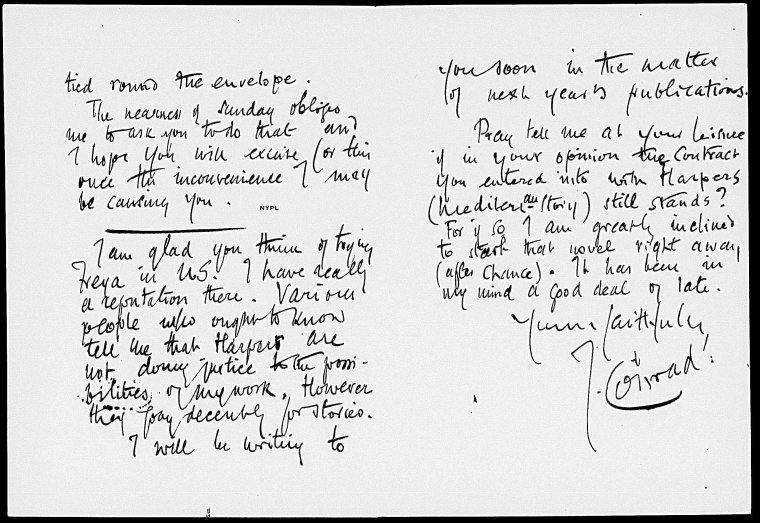 tied round the envelope.
The nearness of Sunday obliges
me to ask you to do that and
I hope you will excuse for this
once the inconvenience I may
be causing you.
NYPL
I am glad you think of trying
Freya in U.S. I have really
a reputation there. Various
people who ought to know
tell me that Harpers are
not doing justice to the possi-
bilities of my work. However
they pay decently for stories.
I will be writing to
you soon in the matter
of next year's publications.
Pray tell me at your leisure
if in your opinion the Contract
you entered into with Harpers
(Mediteran story) still stands?
For if so I am greatly inclined
to start that novel right away
(after Chance). It has been in
my mind a good deal of late.
Yours faithfully
J. Conrad